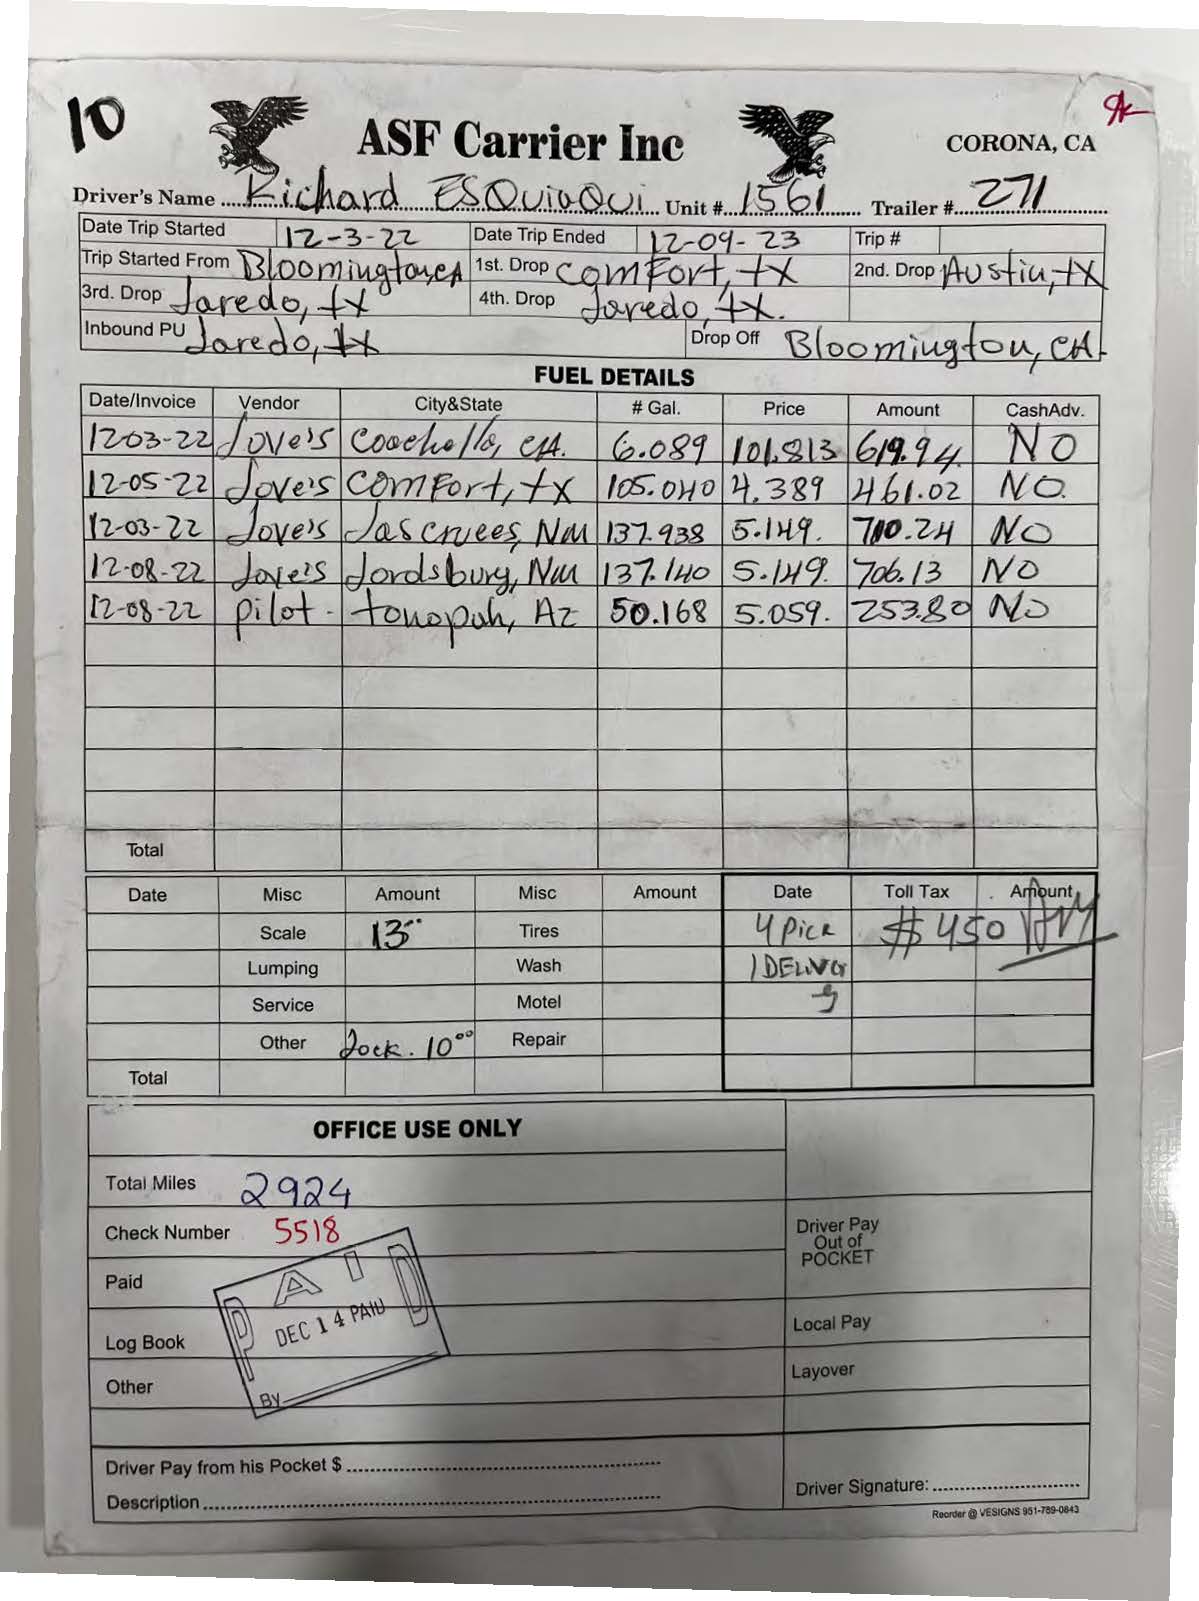 10
ASF Carrier Inc
CORONA, CA
Driver's Name Richard ESQuiaQui Unit # 1561 Trailer # 271
Date Trip Started 12-3-22 Date Trip Ended 12-09-23 Trip #
Trip Started From Bloomington, CA 1st. Drop comFort, tx 2nd. Drop Austin, tx
3rd. Drop Laredo, tx 4th. Drop Laredo, tx.
Inbound PU Laredo, tx Drop Off Bloomington, CA
FUEL DETAILS
Date/Invoice Vendor City&State # Gal. Price Amount CashAdv.
12-03-22 Love's Coachella, CA. 6.089 101.813 619.94 NO
12-05-22 Love's comFort, tx 105.040 4.389 461.02 NO.
12-03-22 Love's Las cruees, NM 137.938 5.149. 710.24 NO
12-08-22 Love's Lordsburg, NM 137.140 5.149. 706.13 NO
12-08-22 pilot - tonopah, Az 50.168 5.059. 253.80 NO
Total
Date Misc Amount Misc Amount Date Toll Tax Amount
Scale 13 Tires 4 Pick $450
Lumping Wash 1 DELIVER
Service Motel
Other Lock. 10°° Repair
Total
OFFICE USE ONLY
Total Miles 2924
Check Number 5518
Paid
PAID
DEC 14 PAID
By
Log Book
Other
Driver Pay
Out of
POCKET
Local Pay
Layover
Driver Pay from his Pocket $
Description
Driver Signature:
Reorder @ VESIGNS 951-789-0843